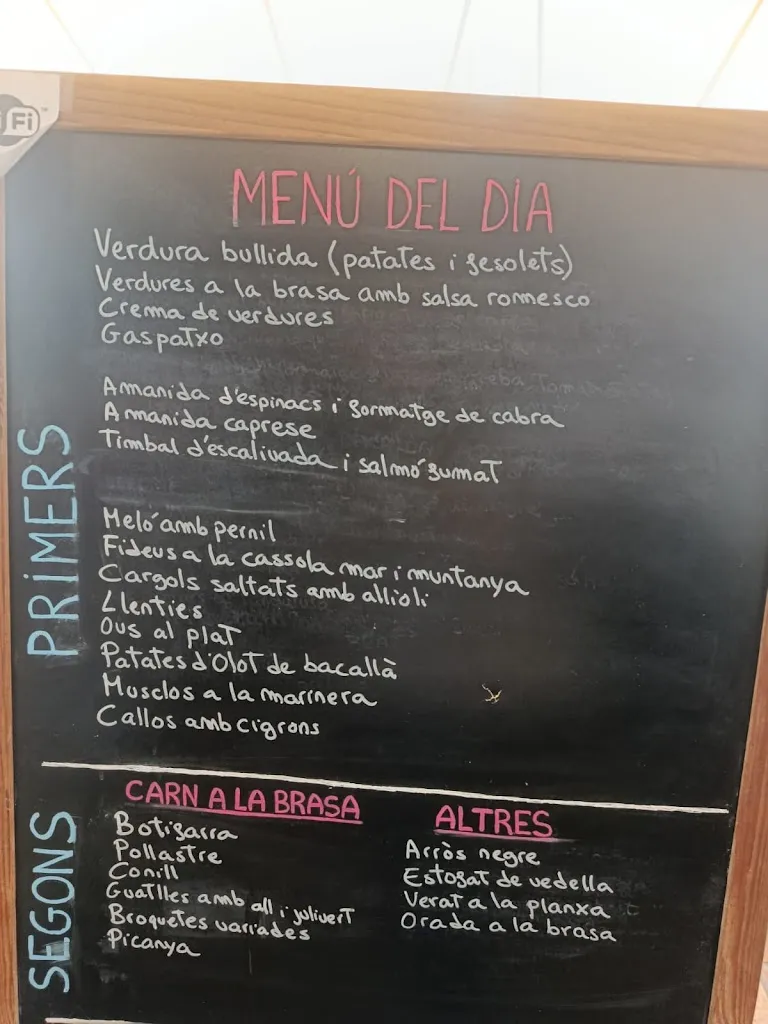 Fi
MENÚ DEL DIA
PRIMERS
Verdura bullida (patates i fesolets)
Verdures a la brasa amb salsa romesco
Crema de verdures
Gaspatxo
Amanida d'espinacs i formatge de cabra
Amanida caprese
Timbal d'escalivada i salmó fumat
Meló amb pernil
Fideus a la cassola mar i muntanya
Cargols saltats amb allioli
Llenties
Ous al plat
Patates d'Olot de bacallà
Musclos a la marinera
Callos amb cigrons
SEGONS
CARN A LA BRASA
Botifarra
Pollastre
Conill
Guatlles amb all i julivert
Broquetes variades
Picanya
ALTRES
Arròs negre
Estofat de vedella
Verat a la planxa
Orada a la brasa